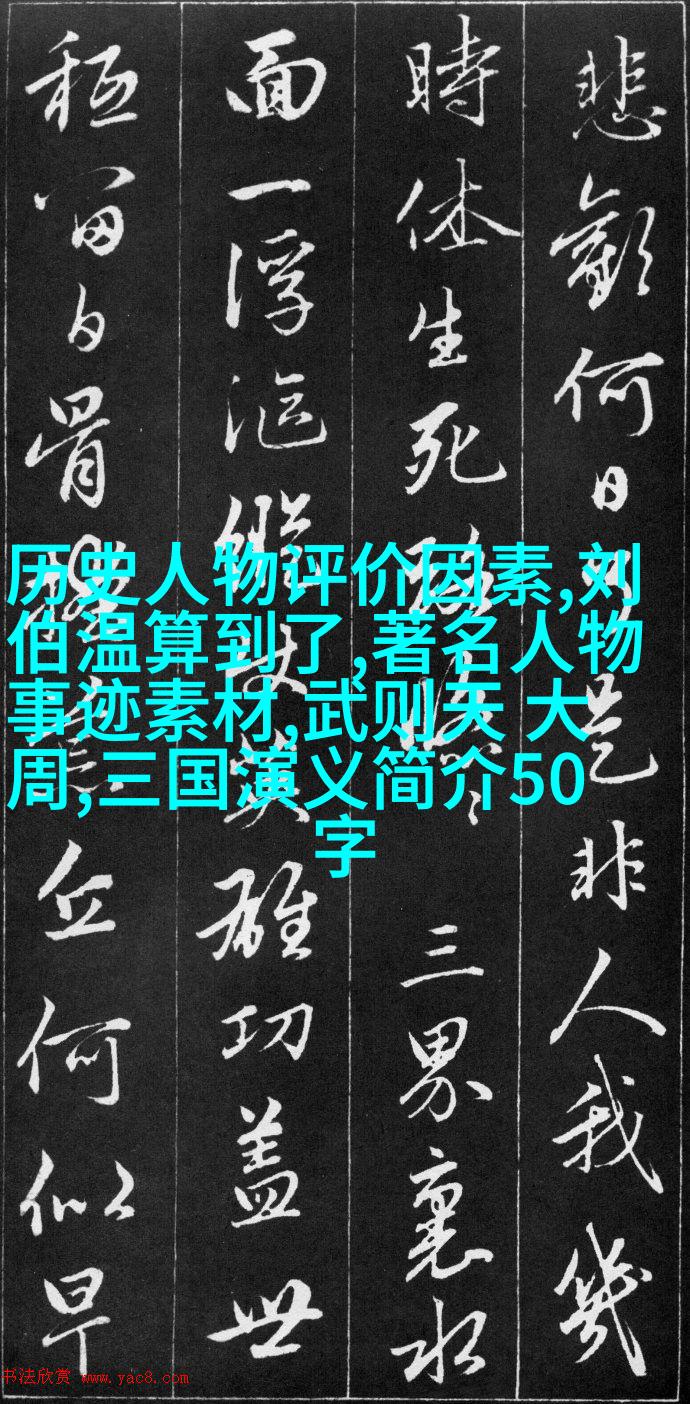 悲歡何日是非人我幾
時休生死路悠悠 三界裏水
面一浮漚縱使英雄功蓋世
秖留白骨丘何似早
历史人物评价因素,刘
伯温算到了,著名人物
事迹素材,武则天 大
周,三国演义简介50
字
书法欣赏 www.yac8.com